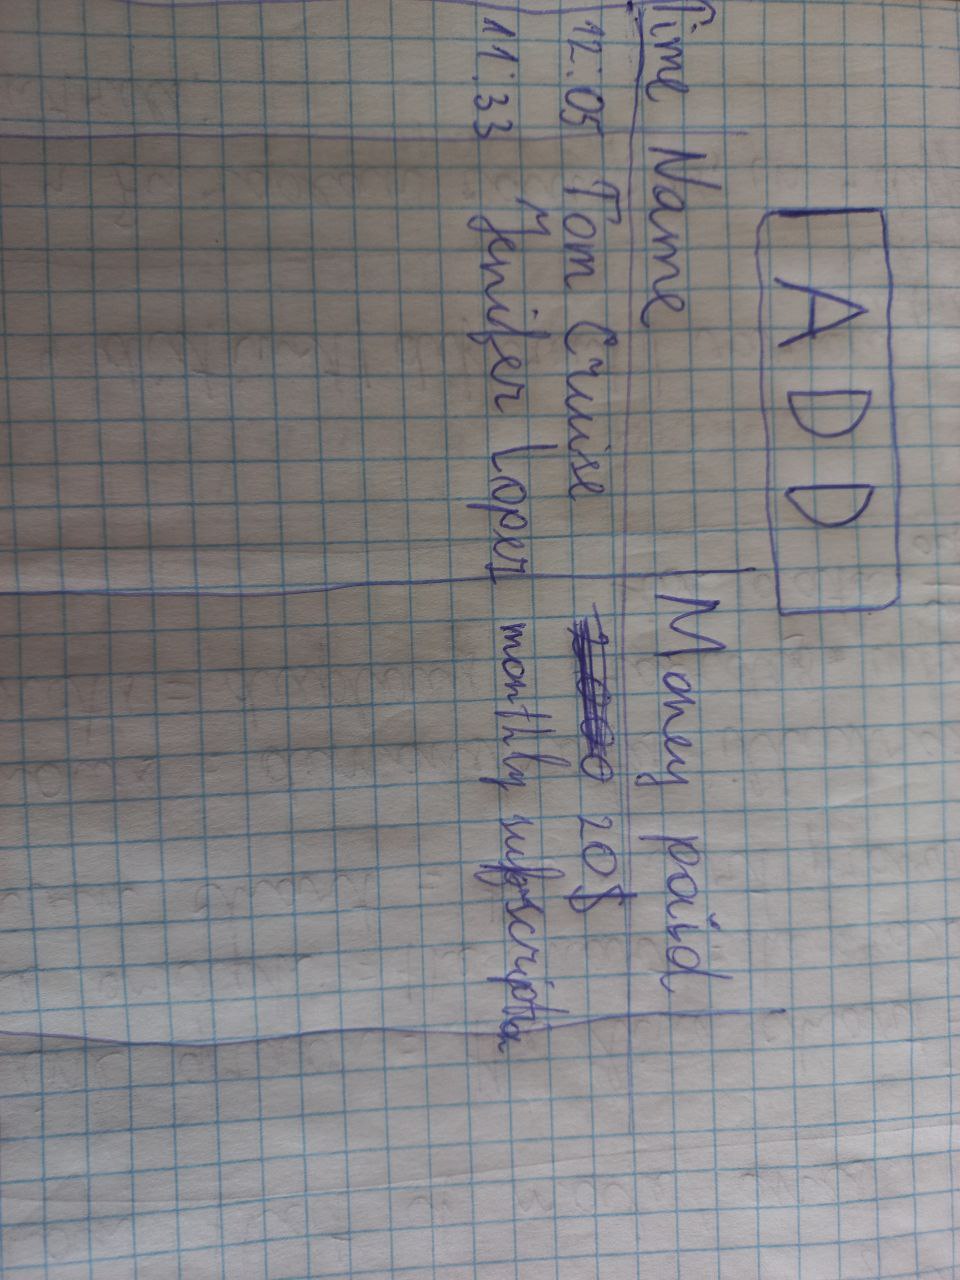 ADD
Time Name Money paid
12:05 Tom Cruise 20$
11:33 Jenifer Loper monthly